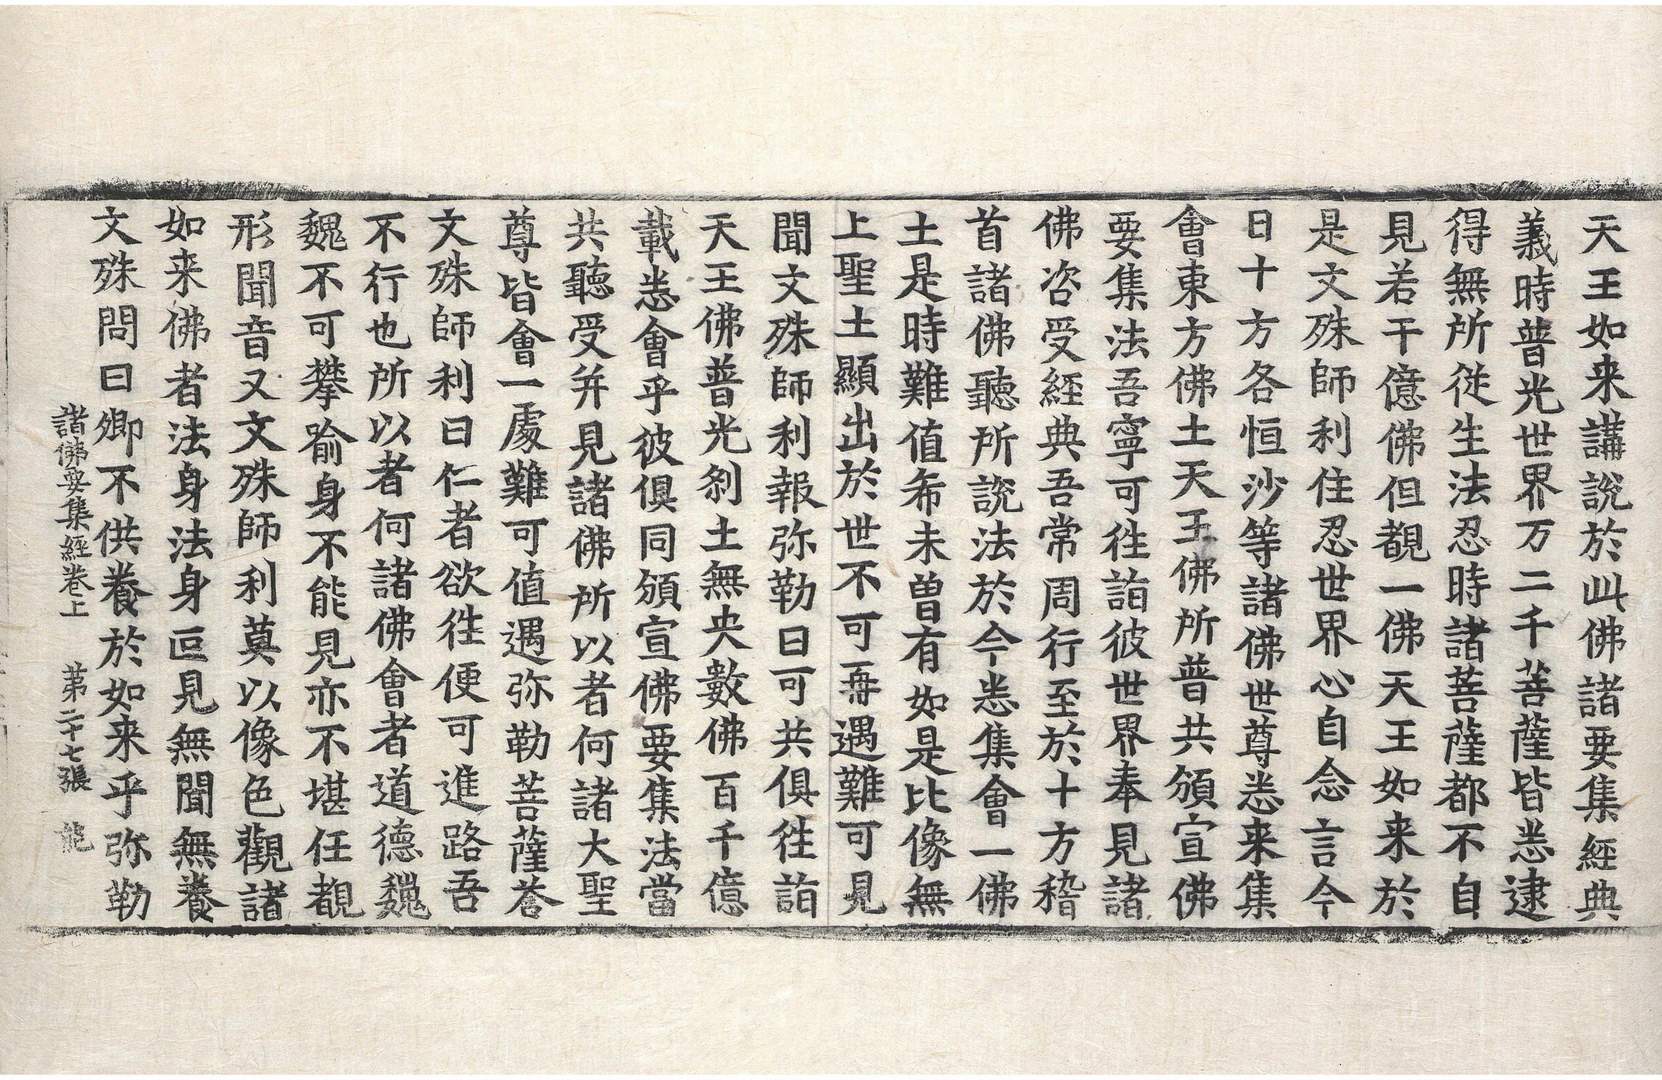 天王如来講說於此佛諸要集經典
義時普光世界万二千菩薩皆悉逮
得無所從生法忍時諸菩薩都不自
見若干億佛但覩一佛天王如来於
是文殊師利住忍世界心自念言今
日十方各恒沙等諸佛世尊悉来集
會東方佛土天王佛所普共頒宣佛
要集法吾寧可往詣彼世界奉見諸
佛咨受經典吾常周行至於十方稽
首諸佛聽所說法於今悉集會一佛
土是時難值希未曽有如是比像無
上聖土顯出於世不可再遇難可見
聞文殊師利報弥勒曰可共俱往詣
天王佛普光刹土無央數佛百千億
載悉會乎彼俱同頒宣佛要集法當
共聽受并見諸佛所以者何諸大聖
尊皆會一處難可值遇弥勒菩薩荅
文殊師利曰仁者欲往便可進路吾
不行也所以者何諸佛會者道德巍
巍不可攀喻身不能見亦不堪任覩
形聞音又文殊師利莫以像色觀諸
如来佛者法身法身叵見無聞無養
文殊問曰卿不供養於如来乎弥勒
諸佛要集經卷上　第二十七張